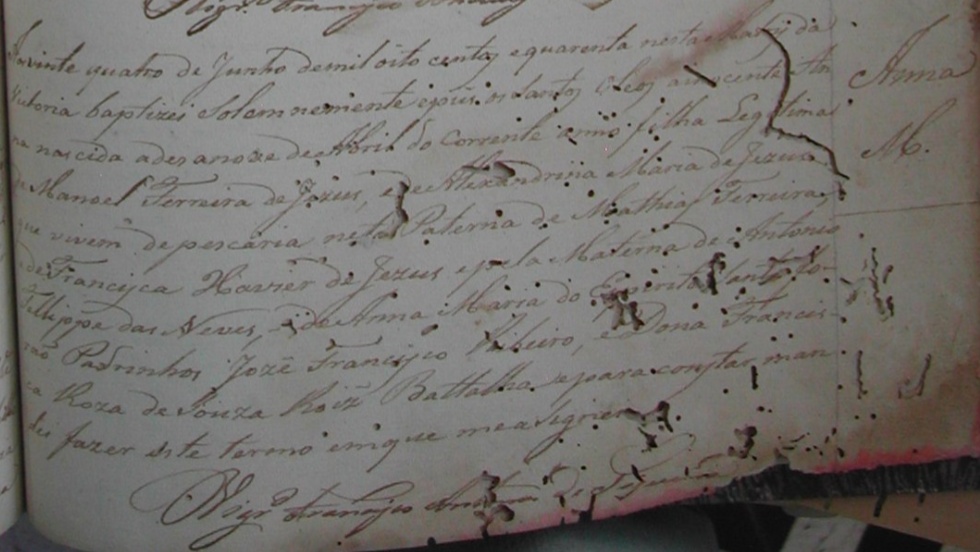 Vigr.º Francisco
Aos vinte quatro de Junho de mil oito centos e quarenta nesta Matriz da
Victoria baptizei Solemnemente e puz os Santos Oleos a inocente An
na nascida a des anove de Abril do Corrente anno filha Legitima
de Manoel Ferreira de Jezus, e de Alexandrina Maria de Jezus
que vivem de pescaria neta Paterna de Mathias Ferreira,
e de Francisca Xavier de Jezus e pela Materna de Antonio
Fillippe das Neves, e de Anna Maria do Espirito Santo fo-
rão Padrinhos Jozé Francisco Ribeiro, e Dona Francis-
ca Roza de Souza Roiz Battalha e para constar man
dei fazer este termo em que me assignei
Vigr.º Francisco
Anna
M.